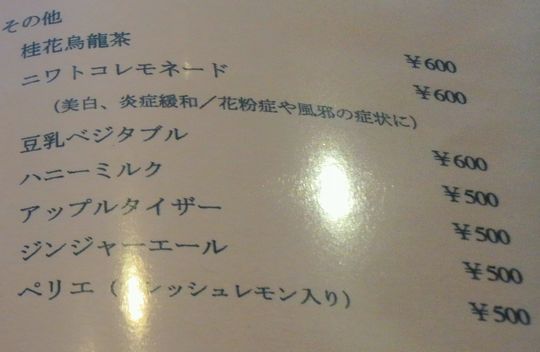 その他
桂花烏龍茶 ￥600
ニワトコレモネード ￥600
(美白、炎症緩和／花粉症や風邪の症状に)
豆乳ベジタブル ￥600
ハニーミルク ￥500
アップルタイザー ￥500
ジンジャーエール ￥500
ペリエ( レッシュレモン入り) ￥500